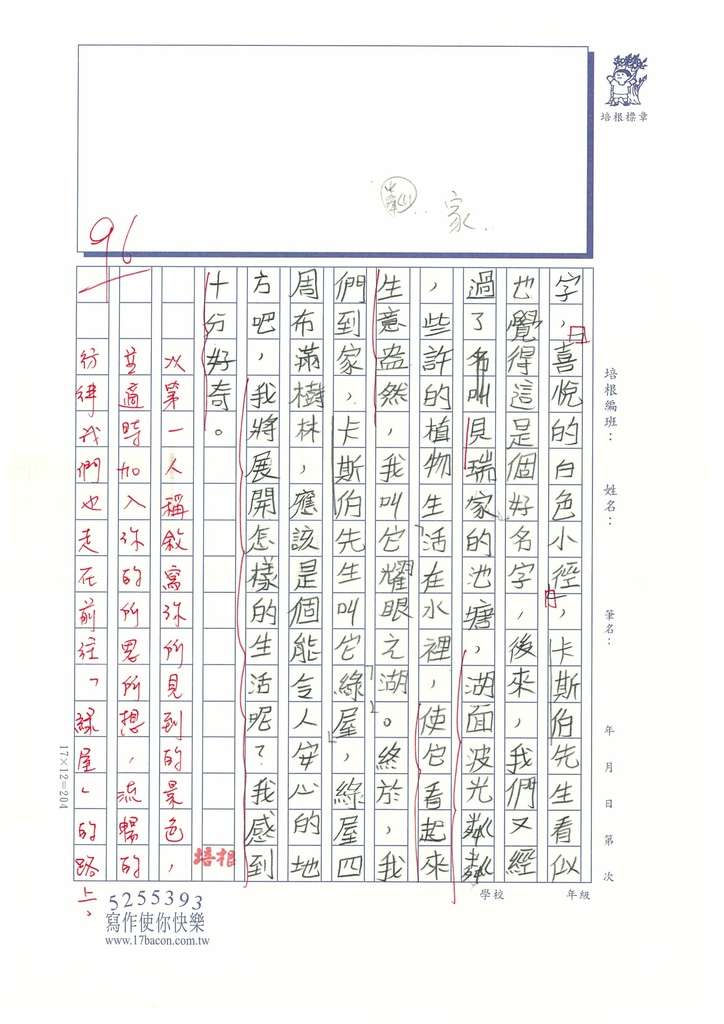 培根標章
家
96
字，喜悅的白色小徑，卡斯伯先生看似
也覺得這是個好名字，後來，我們又經
過了名叫貝瑞家的池塘，湖面波光粼粼
，些許的植物生活在水裡，使它看起來
生意盎然，我叫它耀眼之湖。終於，我
們到家，卡斯伯先生叫它綠屋，綠屋四
周布滿樹林，應該是個能令人安心的地
方吧，我將展開怎樣的生活呢？我感到
十分好奇。
以第一人稱敘寫你所見到的景色，
並適時加入你的所思所想，流暢的
彷彿我們也走在前往「綠屋」的路上。
培根
培根編班：
姓名：
筆名：
年 月 日 第 次
學校
年級
17×12=204
5255393
寫作使你快樂
www.17bacon.com.tw